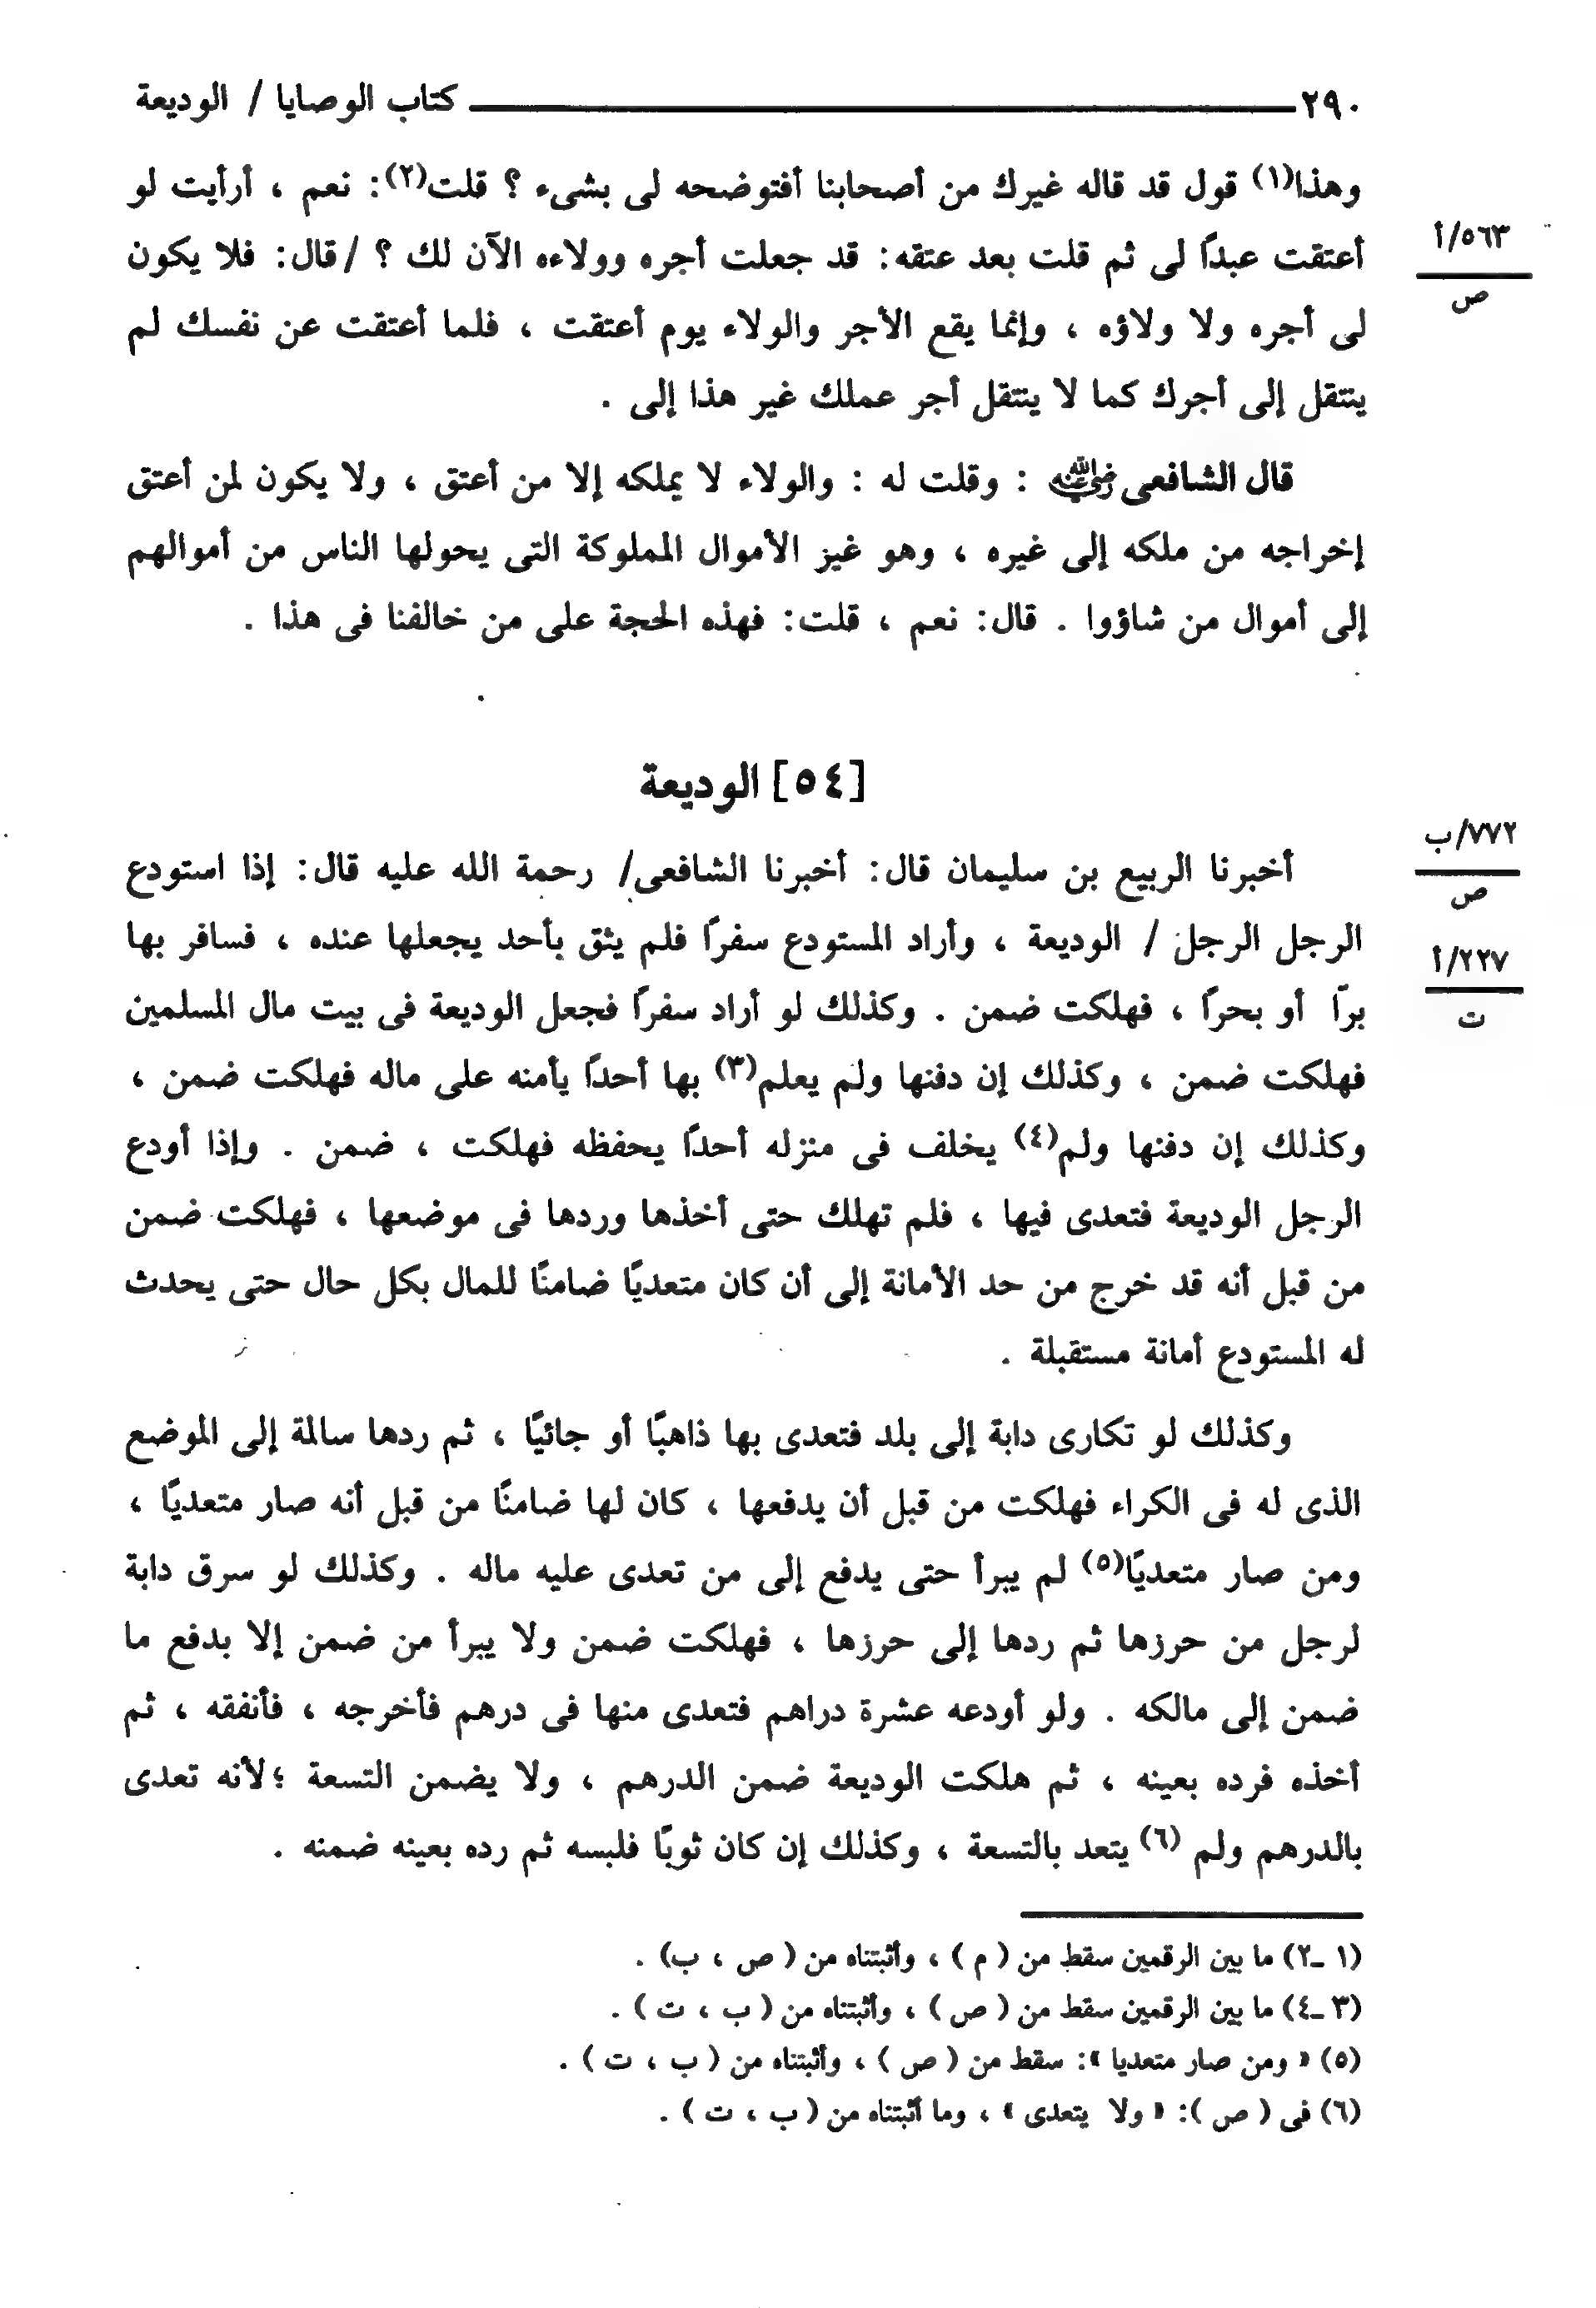 ٢٩٠ كتاب الوصايا / الوديعة
وهذا(١) قول قد قاله غيرك من أصحابنا أفتوضحه لى بشىء ؟ قلت(٢): نعم ، أرأيت لو
أعتقت عبدًا لى ثم قلت بعد عتقه: قد جعلت أجره وولاءه الآن لك ؟ /قال: فلا يكون
٥٦٣/أ
ص
لى أجره ولا ولاؤه ، وإنما يقع الأجر والولاء يوم أعتقت ، فلما أعتقت عن نفسك لم
ينتقل إلى أجرك كما لا ينتقل أجر عملك غير هذا إلى .
قال الشافعى رضي الله عنه : وقلت له : والولاء لا يملكه إلا من أعتق ، ولا يكون لمن أعتق
إخراجه من ملكه إلى غيره ، وهو غيز الأموال المملوكة التى يحولها الناس من أموالهم
إلى أموال من شاؤوا . قال: نعم ، قلت: فهذه الحجة على من خالفنا فى هذا .
[٥٤] الوديعة
أخبرنا الربيع بن سليمان قال: أخبرنا الشافعى/ رحمة الله عليه قال: إذا استودع
٧٧٢/ب
ص
الرجل الرجل / الوديعة ، وأراد المستودع سفرًا فلم يثق بأحد يجعلها عنده ، فسافر بها
٢٢٧/أ
ت
برّا أو بحرًا ، فهلكت ضمن . وكذلك لو أراد سفرًا فجعل الوديعة فى بيت مال المسلمين
فهلكت ضمن ، وكذلك إن دفنها ولم يعلم(٣) بها أحدًا يأمنه على ماله فهلكت ضمن ،
وكذلك إن دفنها ولم(٤) يخلف فى منزله أحدًا يحفظه فهلكت ، ضمن . وإذا أودع
الرجل الوديعة فتعدى فيها ، فلم تهلك حتى أخذها وردها فى موضعها ، فهلكت ضمن
من قبل أنه قد خرج من حد الأمانة إلى أن كان متعديًا ضامنًا للمال بكل حال حتى يحدث
له المستودع أمانة مستقبلة .
وكذلك لو تكارى دابة إلى بلد فتعدى بها ذاهبًا أو جائيًا ، ثم ردها سالمة إلى الموضع
الذى له فى الكراء فهلكت من قبل أن يدفعها ، كان لها ضامنًا من قبل أنه صار متعديًا ،
ومن صار متعديًا(٥) لم يبرأ حتى يدفع إلى من تعدى عليه ماله . وكذلك لو سرق دابة
لرجل من حرزها ثم ردها إلى حرزها ، فهلكت ضمن ولا يبرأ من ضمن إلا بدفع ما
ضمن إلى مالكه . ولو أودعه عشرة دراهم فتعدى منها فى درهم فأخرجه ، فأنفقه ، ثم
أخذه فرده بعينه ، ثم هلكت الوديعة ضمن الدرهم ، ولا يضمن التسعة ؛لأنه تعدى
بالدرهم ولم (٦) يتعد بالتسعة ، وكذلك إن كان ثوبًا فلبسه ثم رده بعينه ضمنه .
(١ ـ٢) ما بين الرقمين سقط من ( م ) ، وأثبتناه من ( ص ، ب) .
(٣ ـ٤) ما بين الرقمين سقط من ( ص ) ، وأثبتناه من ( ب ، ت ) .
(٥) « ومن صار متعديا »: سقط من ( ص ) ، وأثبتناه من ( ب ، ت ) .
(٦) فى ( ص ): « ولا يتعدى » ، وما أثبتناه من ( ب ، ت ) .